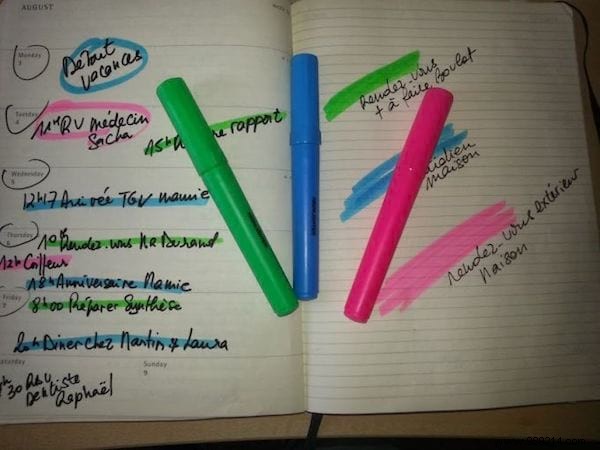 AUGUST
Monday
3
Début
vacances
Tuesday
4
11h RV médecin
Sacha
15h rapport
Wednesday
5
12h17 Arrivée TGV mamie
Thursday
6
10h Rendez-vous Mr Durand
12h Coiffeur
18h Anniversaire Mamie
Friday
7
8h00 Préparer Synthèse
20h Diner chez Martin & Laura
Saturday
Sunday
9
30 RDV
Dentiste
Raphaël
rendez-vous
+ à faire Boulot
maison
rendez-vous extérieur
maison